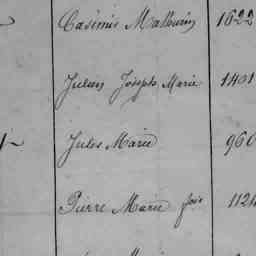 Casimir Mathurin 1622
Julien Joseph Marie 1401
Jules Marie 960
Pierre Marie fois 1121